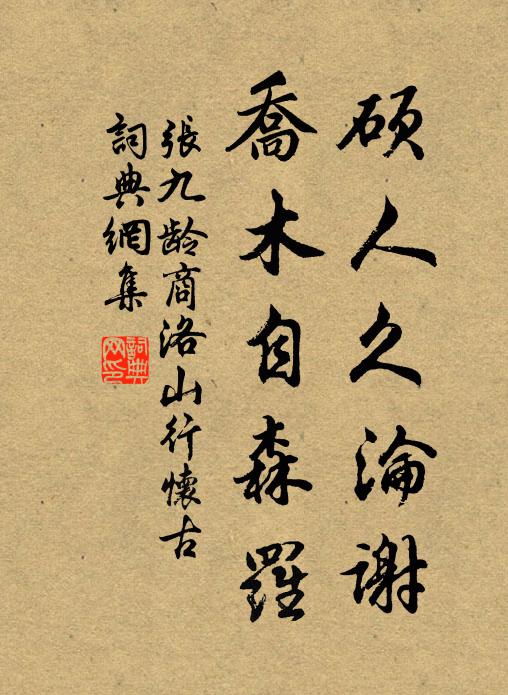 碩人久淪謝
喬木自森羅
張九齡商洛山行懷古
詞典網集
詞典网印